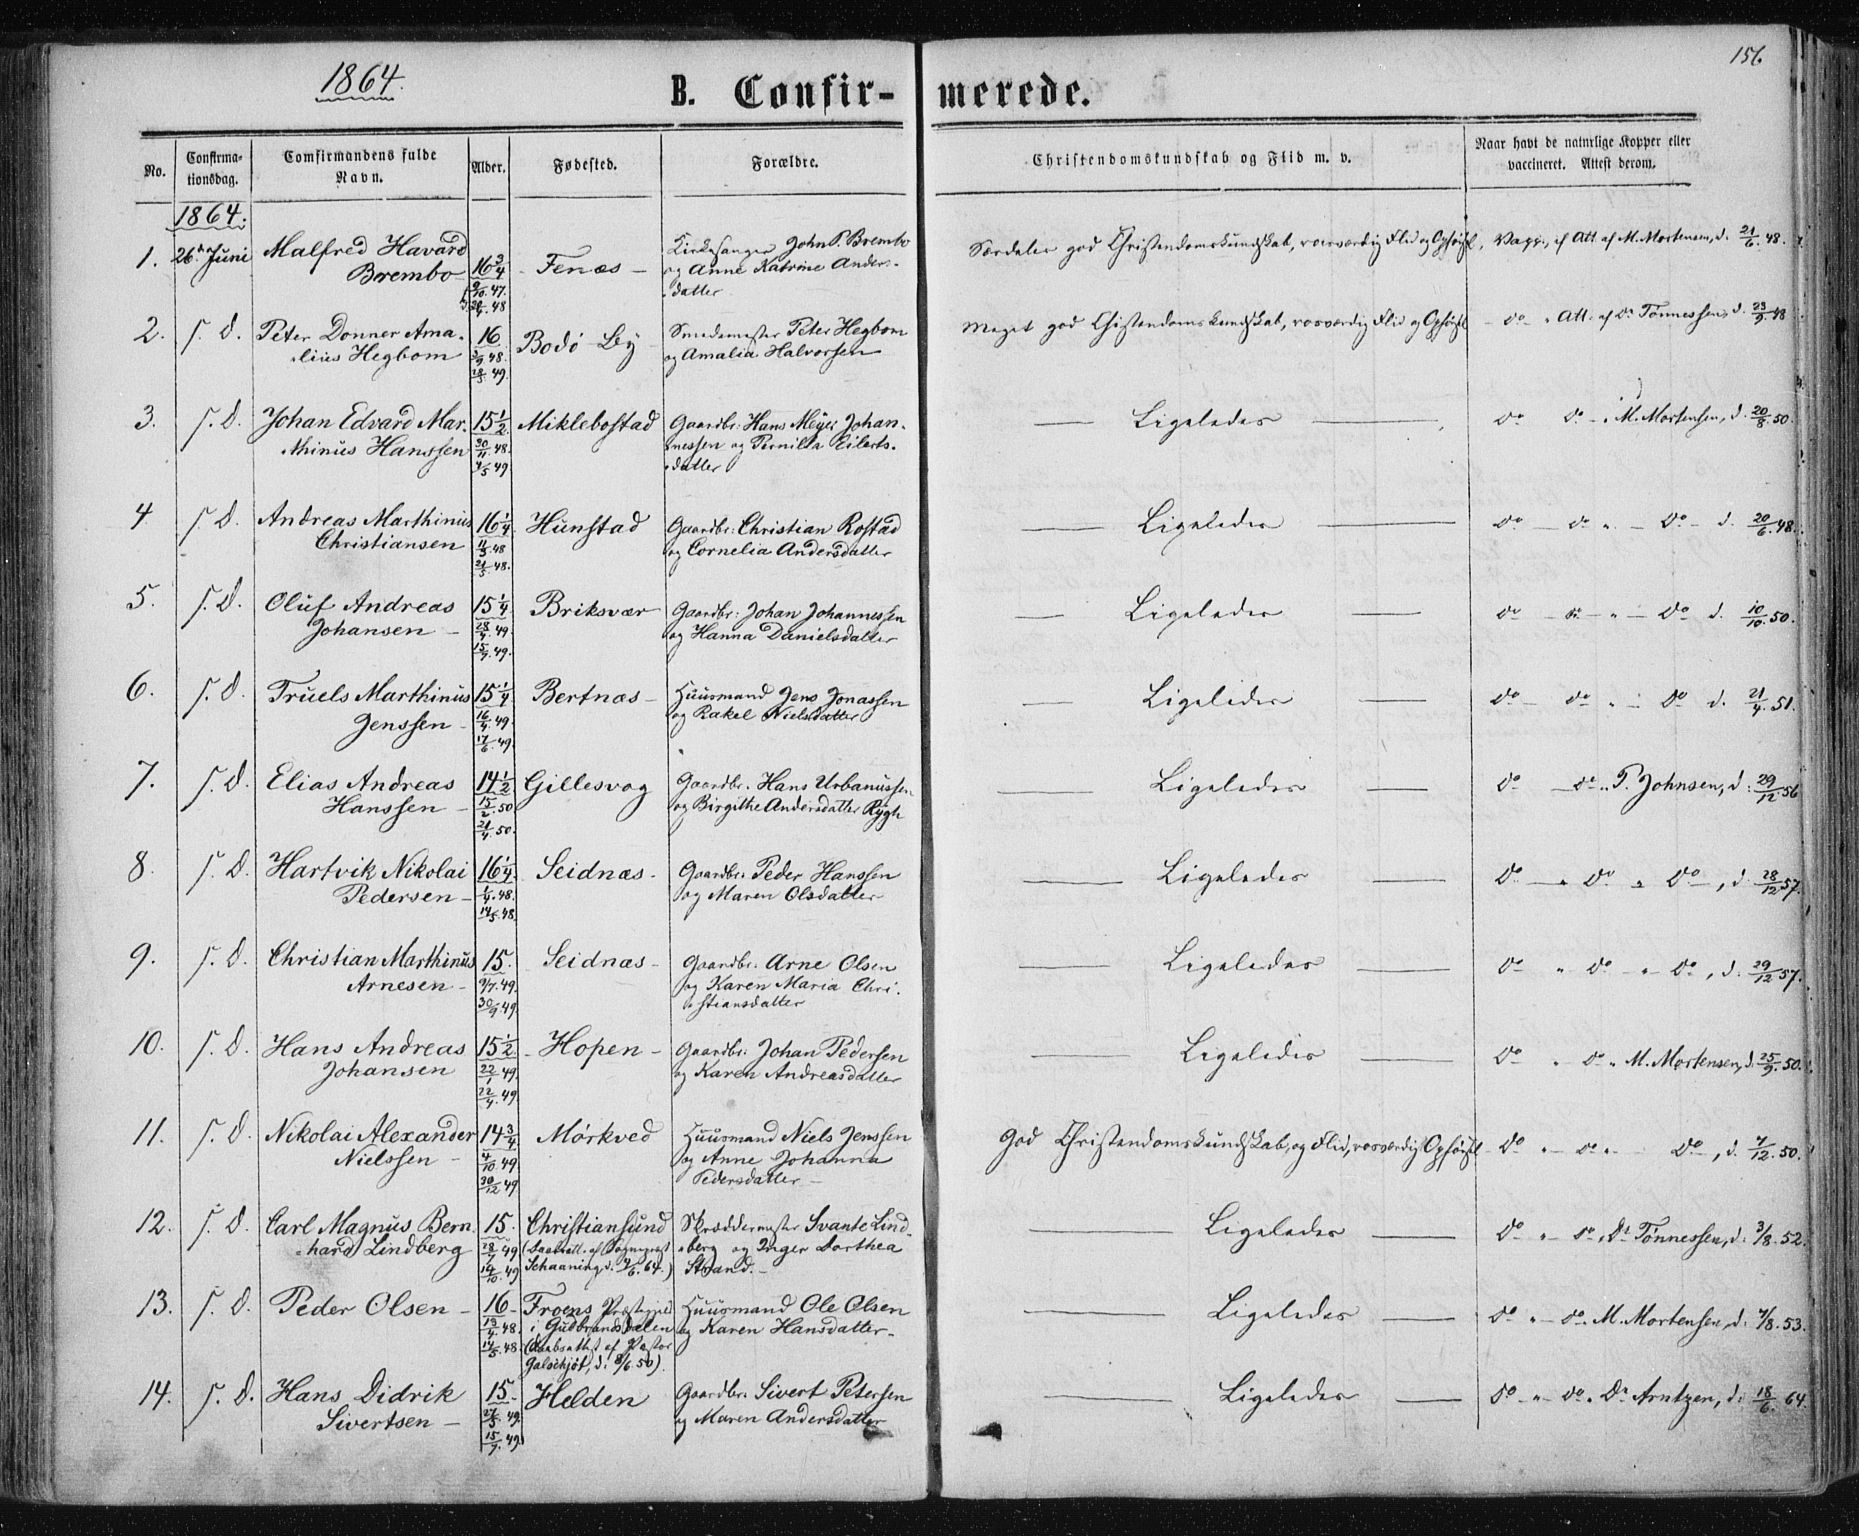 1864.
156
B. Confir- merede.
No. Confirma-tionsdag. Comfirmandens fulde Navn. Alder. Fødested. Forældre. Christendomskundskab og Flid m. v. Naar havt de naturlige Kopper eller vaccineret. Attest derom.
1864.
1. 26de Juni Malfred Havard Brembo 16 3/4 9/10.47. 48 Fenæs Kirkesanger John P. Brembo og Anne Katrine Andersdatter Særdeles god Christendomskundskab, roesværdig Flid og Opførsel, Vacc., if Att. af M. Mortensen, d. 21/6.48.
2. s. D. Peter Donner Amalius Hegbom 16 3/9.48. 28/5.49. Bodø By Smedemester Peter Hegbom og Amalia Halvorsen Meget god Christendomskundskab, rosværdig Flid og Opførsel do Att. af Dr Tønnessen, d. 23/9.48
3. s. D. Johan Edvard Marthinius Hanssen 15 1/2 30/11.48. 4/5.49 Miklebostad Gaardbr: Hans Meyer Johannessen og Pernilla Eilertsdatter Ligeledes do do M. Mortensen, d. 20/8.50.
4 s. D. Andreas Marthinius Christiansen 16 1/4 11/3.48 21/5.48. Hunstad Gaardbr: Christian Rostad og Cornelia Andersdatter Ligeledes do do do d. 20/6.48.
5. s. D. Oluf Andreas Johansen 15 1/4 28/4.49. 15/7.49. Briksvær Gaardbr: Johan Johannessen og Hanna Danielsdatter Ligeledes do do do d. 10/10.50.
6. s. D. Truels Marthinus Jenssen 15 1/4 16/4.49. 17/6.49. Bertnæs Huusmand Jens Jonassen og Rakel Nielsdatter Ligeledes do do do d. 21/4.51.
7. s. D. Elias Andreas Hanssen 14 1/2 15/2.50 21/4.50. Gillesvog Gaardbr. Hans Urbanussen og Birgithe Andersdatter Rygh Ligeledes do do P. Johnsen, d. 29/12 56
8. s. D. Hartvik Nikolai Pedersen 16 1/4 1/4.48. 14/5.48. Seidnæs Gaardbr. Peder Hanssen og Maren Olsdatter Ligeledes do do do, d. 28/12 57.
9. s. D. Christian Marthinus Arnesen 15. 9/7.49. 30/9.49. Seidnæs Gaardbr. Arne Olsen og Karen Maria Christiansdatter Ligeledes do do do, d. 29/12 57.
10. s. D. Hans Andreas Johansen 15 1/2. 22/1 49. 22/4.49 Hopen Gaardbr: Johan Pedersen og Karen Andreasdatter Ligeledes do do M. Mortensen, d. 25/9.50.
11. s. D. Nikolai Alexander Nielssen 14 3/4 4/10 49. 30/12 49 Mørkved Huusmand Niels Jenssen og Anne Johanna Pedersdatter God Christendomskundskab, og Flid, rosværdig Opførsel do do do, d. 7/12.50.
12. s. D. Carl Magnus Bernhard Lindberg 15. 28/7 49 14/10.49 Christiansund (Daabsatt. af Sognepræst Schaaning, d. 7/6.64.) Skræddermester Svante Lindberg og Inger Dorthea Strand. Ligeledes do do Dr Tønnessen, d. 3/8.52.
13. s. D. Peder Olsen 16 19/4.48. 14/5.48 Froens Præstegjeld i Gudbrandsdalen (Daabsattest af Pastor Galschjøt, d. 8/6.50). Huusmand Ole Olsen og Karen Hansdatter. Ligeledes do do M. Mortensen, d. 7/8.53.
14. s. D. Hans Didrik Sivertsen 15. 27/5 49. 15/7.49. Helden Gaardbr. Sivert Petersen og Maren Andersdatter Ligeledes do do Dr Arntzen, d. 18/6. 64.